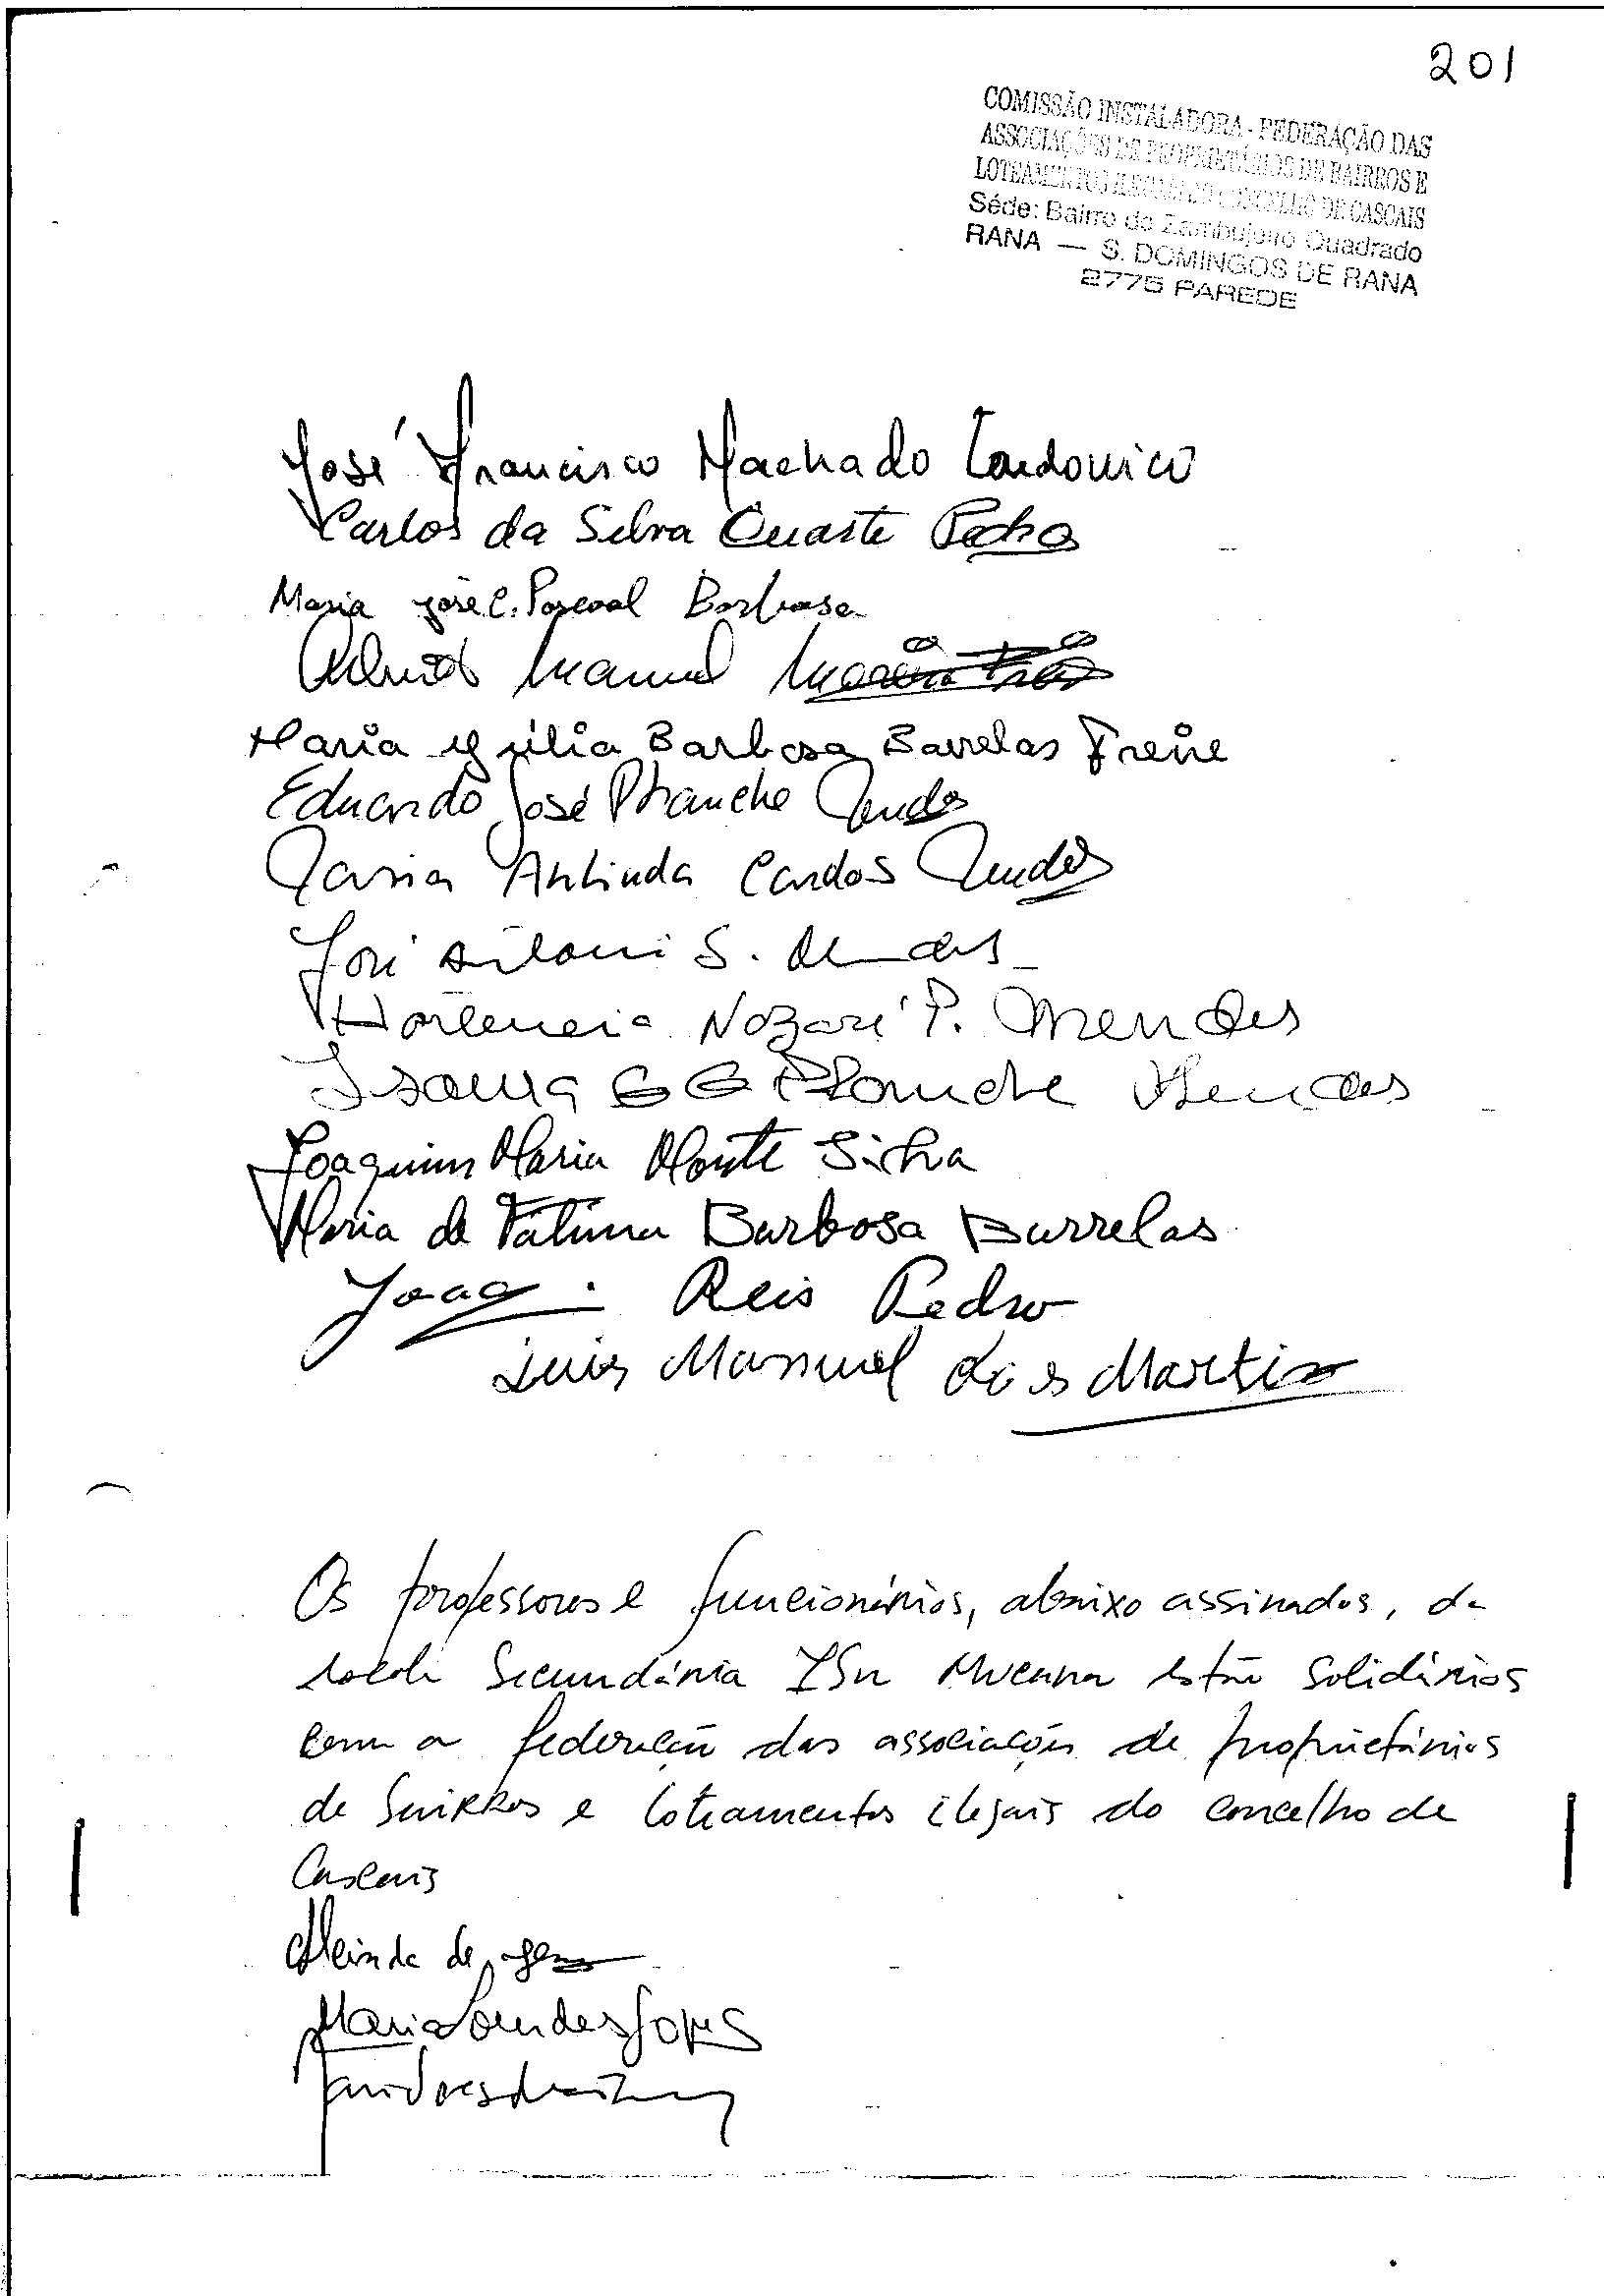 201
COMISSÃO INSTALADORA - FEDERAÇÃO DAS
ASSOCIAÇÕES DE PROPRIETÁRIOS DE BAIRROS E
LOTEAMENTOS ILEGAIS DO CONCELHO DE CASCAIS
Séde: Bairro do Zambujeiro Quadrado
RANA — S. DOMINGOS DE RANA
2775 PAREDE
José Francisco Machado
Carlos da Silva Duarte Pedro
Maria José C. Pascoal Barbosa
Manuel
Maria Júlia Barbosa Barrelas Freire
Eduardo José Planche Mendes
Maria Arlinda Cardos Mendes
José António S. Mendes
Hortencia Nazaré P. Mendes
Isaura G G Planche Mendes
Joaquim Maria Monte Silva
Maria de Fátima Barbosa Barrelas
Joaq. Reis Pedro
Luis Manuel Martins
Os professores e funcionários, abaixo assinados, da
escola Secundária estão solidários
com a federação das associações de proprietários
de bairros e loteamentos ilegais do concelho de
Cascais
de
Maria Lourdes Lopes